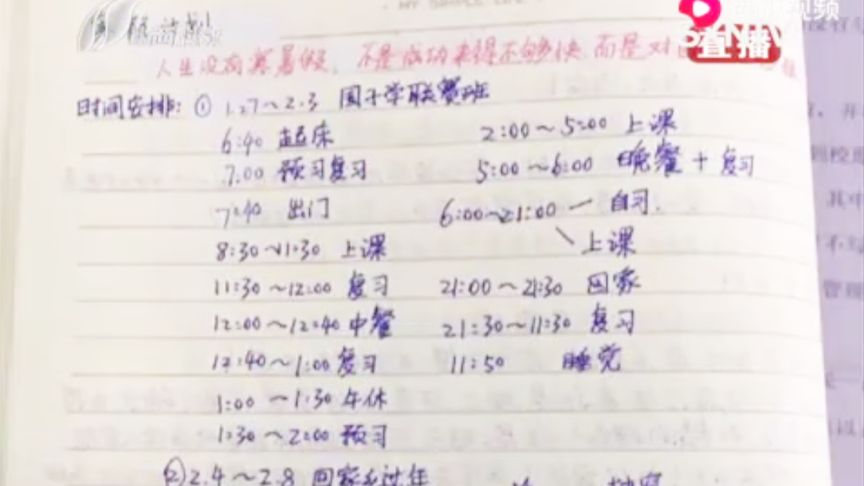 MY SIMPLE LIFE
计划
直播
人生没有寒暑假，不是成功来得不够快，而是对
时间安排：① 1.27～2.3 国子学联赛班
6:40 起床
7:00 预习复习
7:40 出门
8:30～11:30 上课
11:30～12:00 复习
12:00～12:40 中餐
12:40～1:00 复习
1:00～1:30 午休
1:30～2:00 预习
2:00～5:00 上课
5:00～6:00 晚餐＋复习
6:00～21:00 自习.
上课
21:00～21:30 回家
21:30～11:30 复习
11:50 睡觉
②2.4～2.8 回家乡过年